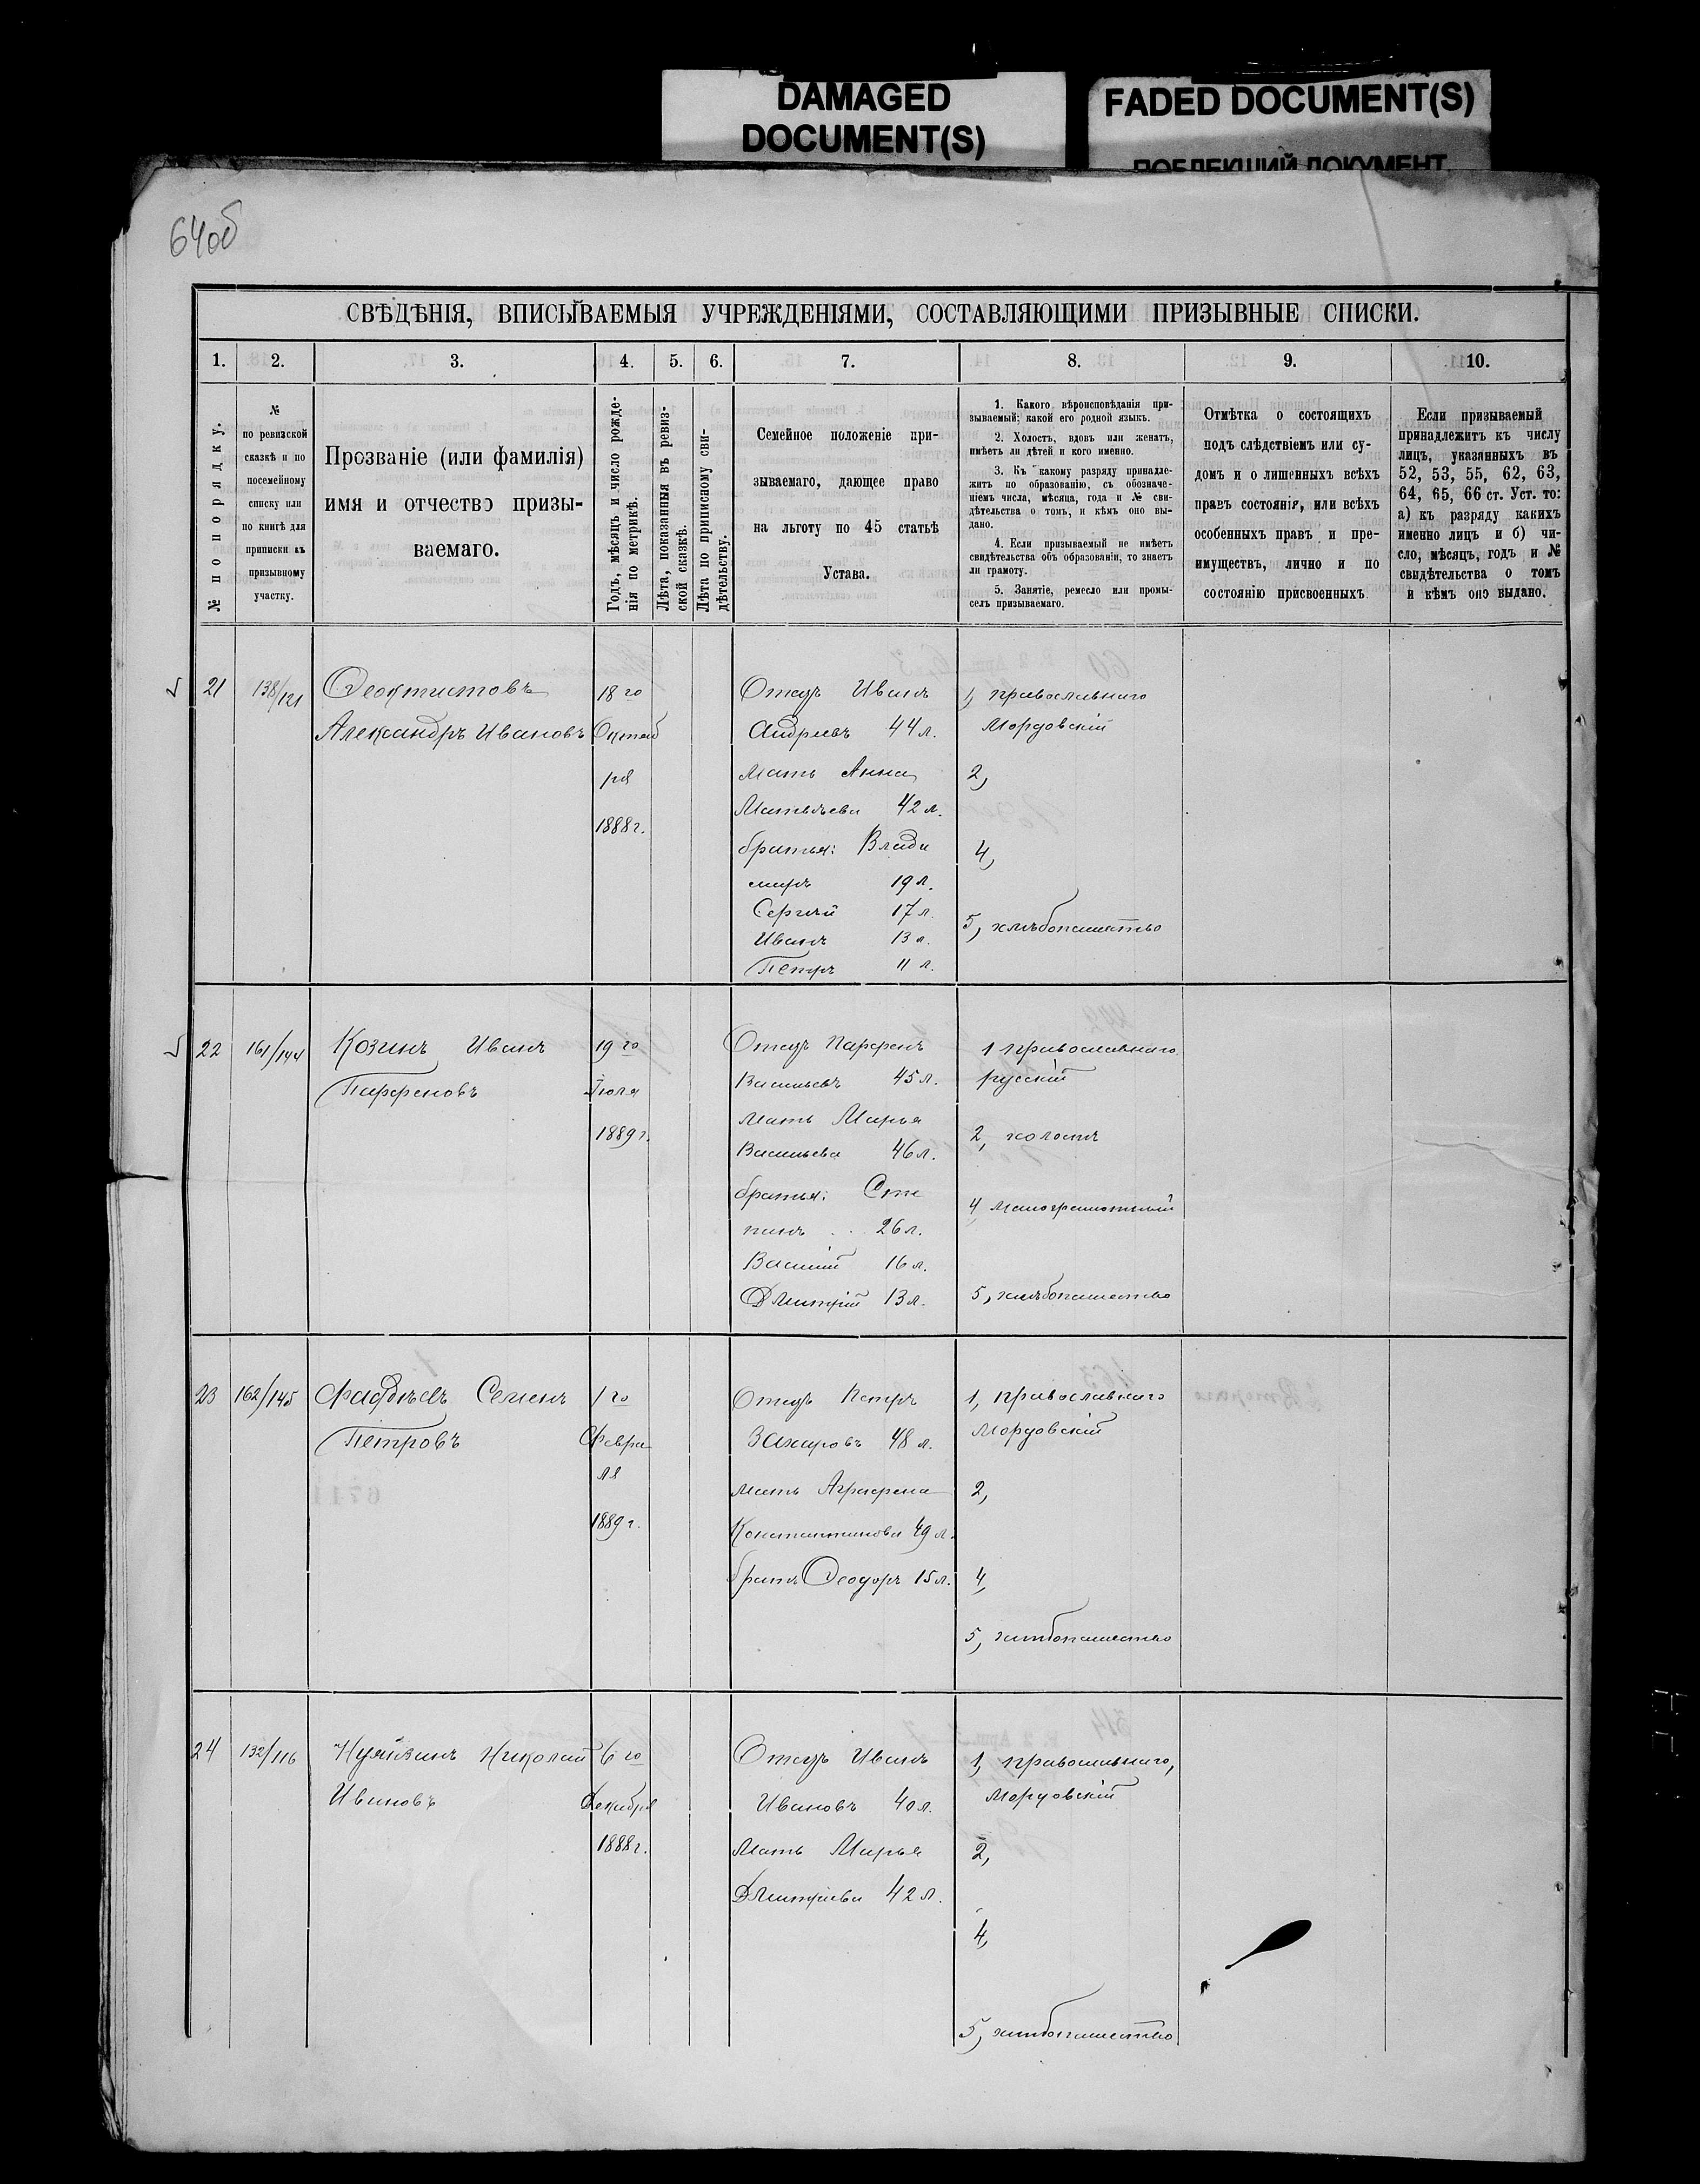 DAMAGED
DOCUMENT(S)
FADED DOCUMENT(S)
ПОБЛЕКШИЙ ДОКУМЕНТ
64об
СВѢДѢНІЯ, ВПИСЫВАЕМЫЯ УЧРЕЖДЕНІЯМИ, СОСТАВЛЯЮЩИМИ ПРИЗЫВНЫЕ СПИСКИ.
1. 2. 3. 4. 5. 6. 7. 8. 9. 10.
№ по порядку.
№
по ревизской
сказкѣ и по
посемейному
списку или
по книгѣ для
приписки къ
призывному
участку.
Прозваніе (или фамилія)
имя и отчество призы-
ваемаго.
Годъ, мѣсяцъ и число рожде-
нія по метрикѣ.
Лѣта, показанныя въ ревиз-
ской сказкѣ.
Лѣта по приписному сви-
дѣтельству.
Семейное положеніе при-
зываемаго, дающее право
на льготу по 45 статьѣ
Устава.
1. Какого вѣроисповѣданія при-
зываемый; какой его родной языкъ.
2. Холостъ, вдовъ или женатъ,
имѣетъ ли дѣтей и кого именно.
3. Къ какому разряду принадле-
житъ по образованію, съ обозначе-
ніемъ числа, мѣсяца, года и № сви-
дѣтельства о томъ, и кѣмъ оно вы-
дано.
4. Если призываемый не имѣетъ
свидѣтельства объ образованіи, то знаетъ
ли грамоту.
5. Занятіе, ремесло или промы-
селъ призываемаго.
Отмѣтка о состоящихъ
подъ слѣдствіемъ или су-
домъ и о лишенныхъ всѣхъ
правъ состоянія, или всѣхъ
особенныхъ правъ и пре-
имуществъ, лично и по
состоянію присвоенныхъ
Если призываемый
принадлежитъ къ числу
лицъ, указанныхъ въ
52, 53, 55, 62, 63,
64, 65, 66 ст. Уст. то:
а) къ разряду какихъ
именно лицъ и б) чи-
сло, мѣсяцъ, годъ и №
свидѣтельства о томъ
и кѣмъ оно выдано.
21
138/121
Ѳеоктистовъ
Александръ Ивановъ
18го
Октяб
ря
1888 г.
Отецъ Иванъ
Андреевъ 44 л.
мать Анна
Матвѣева 42 л.
братья: Влади
миръ 19 л.
Сергѣй 17 л.
Иванъ 13 л.
Петръ 11 л.
1, православнаго
Мордовскій
2,
4,
5, хлѣбопашество
22
161/144
Козинъ Иванъ
Парфеновъ
19го
Іюля
1889 г.
Отецъ Парфенъ
Васильевъ 45 л.
мать Марья
Васильева 46 л.
братья: Сте
панъ 26 л.
Василій 16 л.
Дмитрій 13 л.
1 православнаго
русскій
2, холостъ
4 малограмотный
5, хлѣбопашество
23
162/145
Фадѣевъ Семенъ
Петровъ
1го
Февра
ля
1889 г.
Отецъ Петръ
Захаровъ 48 л.
мать Аграфена
Константинова 49 л.
братъ Ѳеодоръ 15 л.
1, православнаго
Мордовскій
2,
4,
5, хлѣбопашество
24
132/116
Николай
Ивановъ
6го
Декабря
1888 г.
Отецъ Иванъ
Ивановъ 40 л.
мать Марья
Дмитріева 42 л.
1, православнаго,
Мордовскій
2,
4,
5, хлѣбопашество